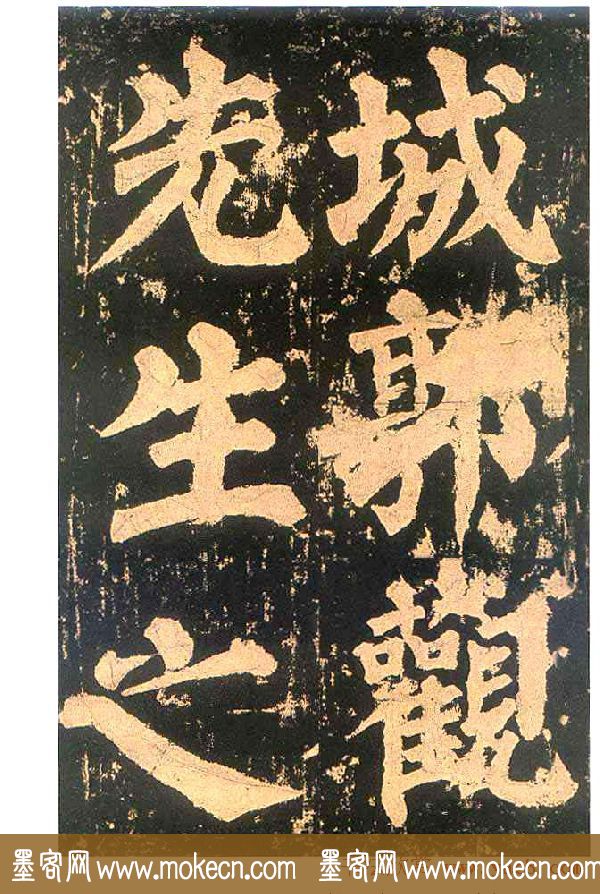 城郭觀
先生之
墨客网 www.mokecn.com 墨客网 www.mokecn.com